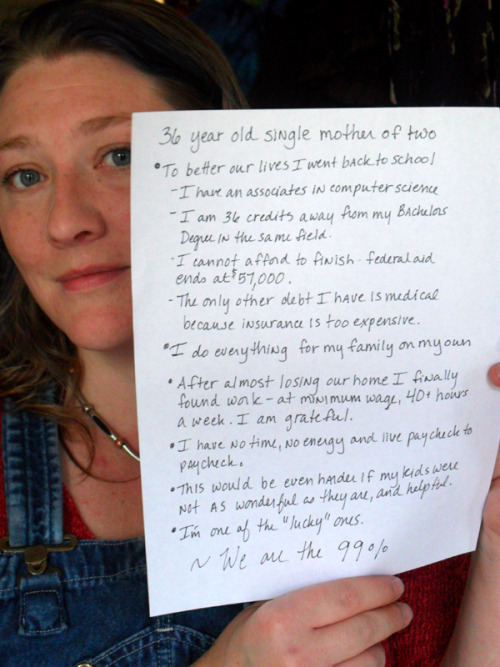 36 year old single mother of two
• To better our lives I went back to school
- I have an associates in computer science
- I am 36 credits away from my Bachelors
Degree in the same field.
- I cannot afford to finish - federal aid
ends at $57,000.
- The only other debt I have is medical
because insurance is too expensive.
• I do everything for my family on my own
• After almost losing our home I finally
found work - at minimum wage, 40+ hours
a week. I am grateful.
• I have no time, no energy and live paycheck to
paycheck.
• This would be even harder if my kids were
not as wonderful as they are, and helpful.
• I'm one of the "lucky" ones.
~ We are the 99%